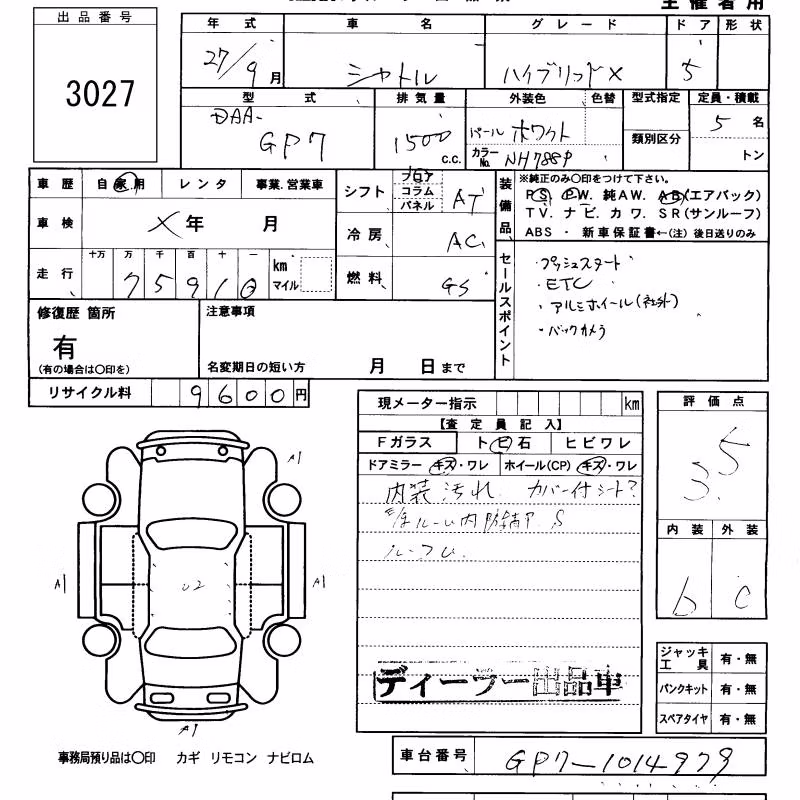 主催者用
出品番号
3027
年式 車名 グレード ドア 形状
27/9月 シャトル ハイブリッドX 5
型式 排気量 外装色 色替 型式指定 定員・積載
DAA-
GP7 1500 c.c. パール ホワイト 類別区分 5名
カラーNo. NH788P トン
車歴 自家用 レンタ 事業.営業車
車検 × 年 月
走行 十万 万 千 百 十 一 km マイル
7 5 9 1 0
シフト フロア コラム パネル AT
冷房 AC
燃料 GS
装備品
※純正のみ〇印をつけて下さい。
PS. PW. 純AW. AB(エアバック)
TV. ナビ. カワ. SR(サンルーフ)
ABS ・ 新車保証書←(注) 後日送りのみ
セールスポイント
・プッシュスタート
・ETC
・アルミホイール(社外)
・バックカメラ
修復歴 箇所
有
(有の場合は〇印を)
注意事項
名変期日の短い方 月 日まで
リサイクル料 9600円
現メーター指示 km
【査定員記入】
Fガラス トビ石 ヒビワレ
ドアミラー キズ・ワレ ホイール(CP) キズ・ワレ
内装汚れ カバー付シート?
ルーム内 S
評価点
3.5
内装 外装
b C
A1
A1 U2 A1
A1
ディーラー出品車
ジャッキ工具 有・無
パンクキット 有・無
スペアタイヤ 有・無
事務局預り品は〇印 カギ リモコン ナビロム
車台番号 GP7-1014979